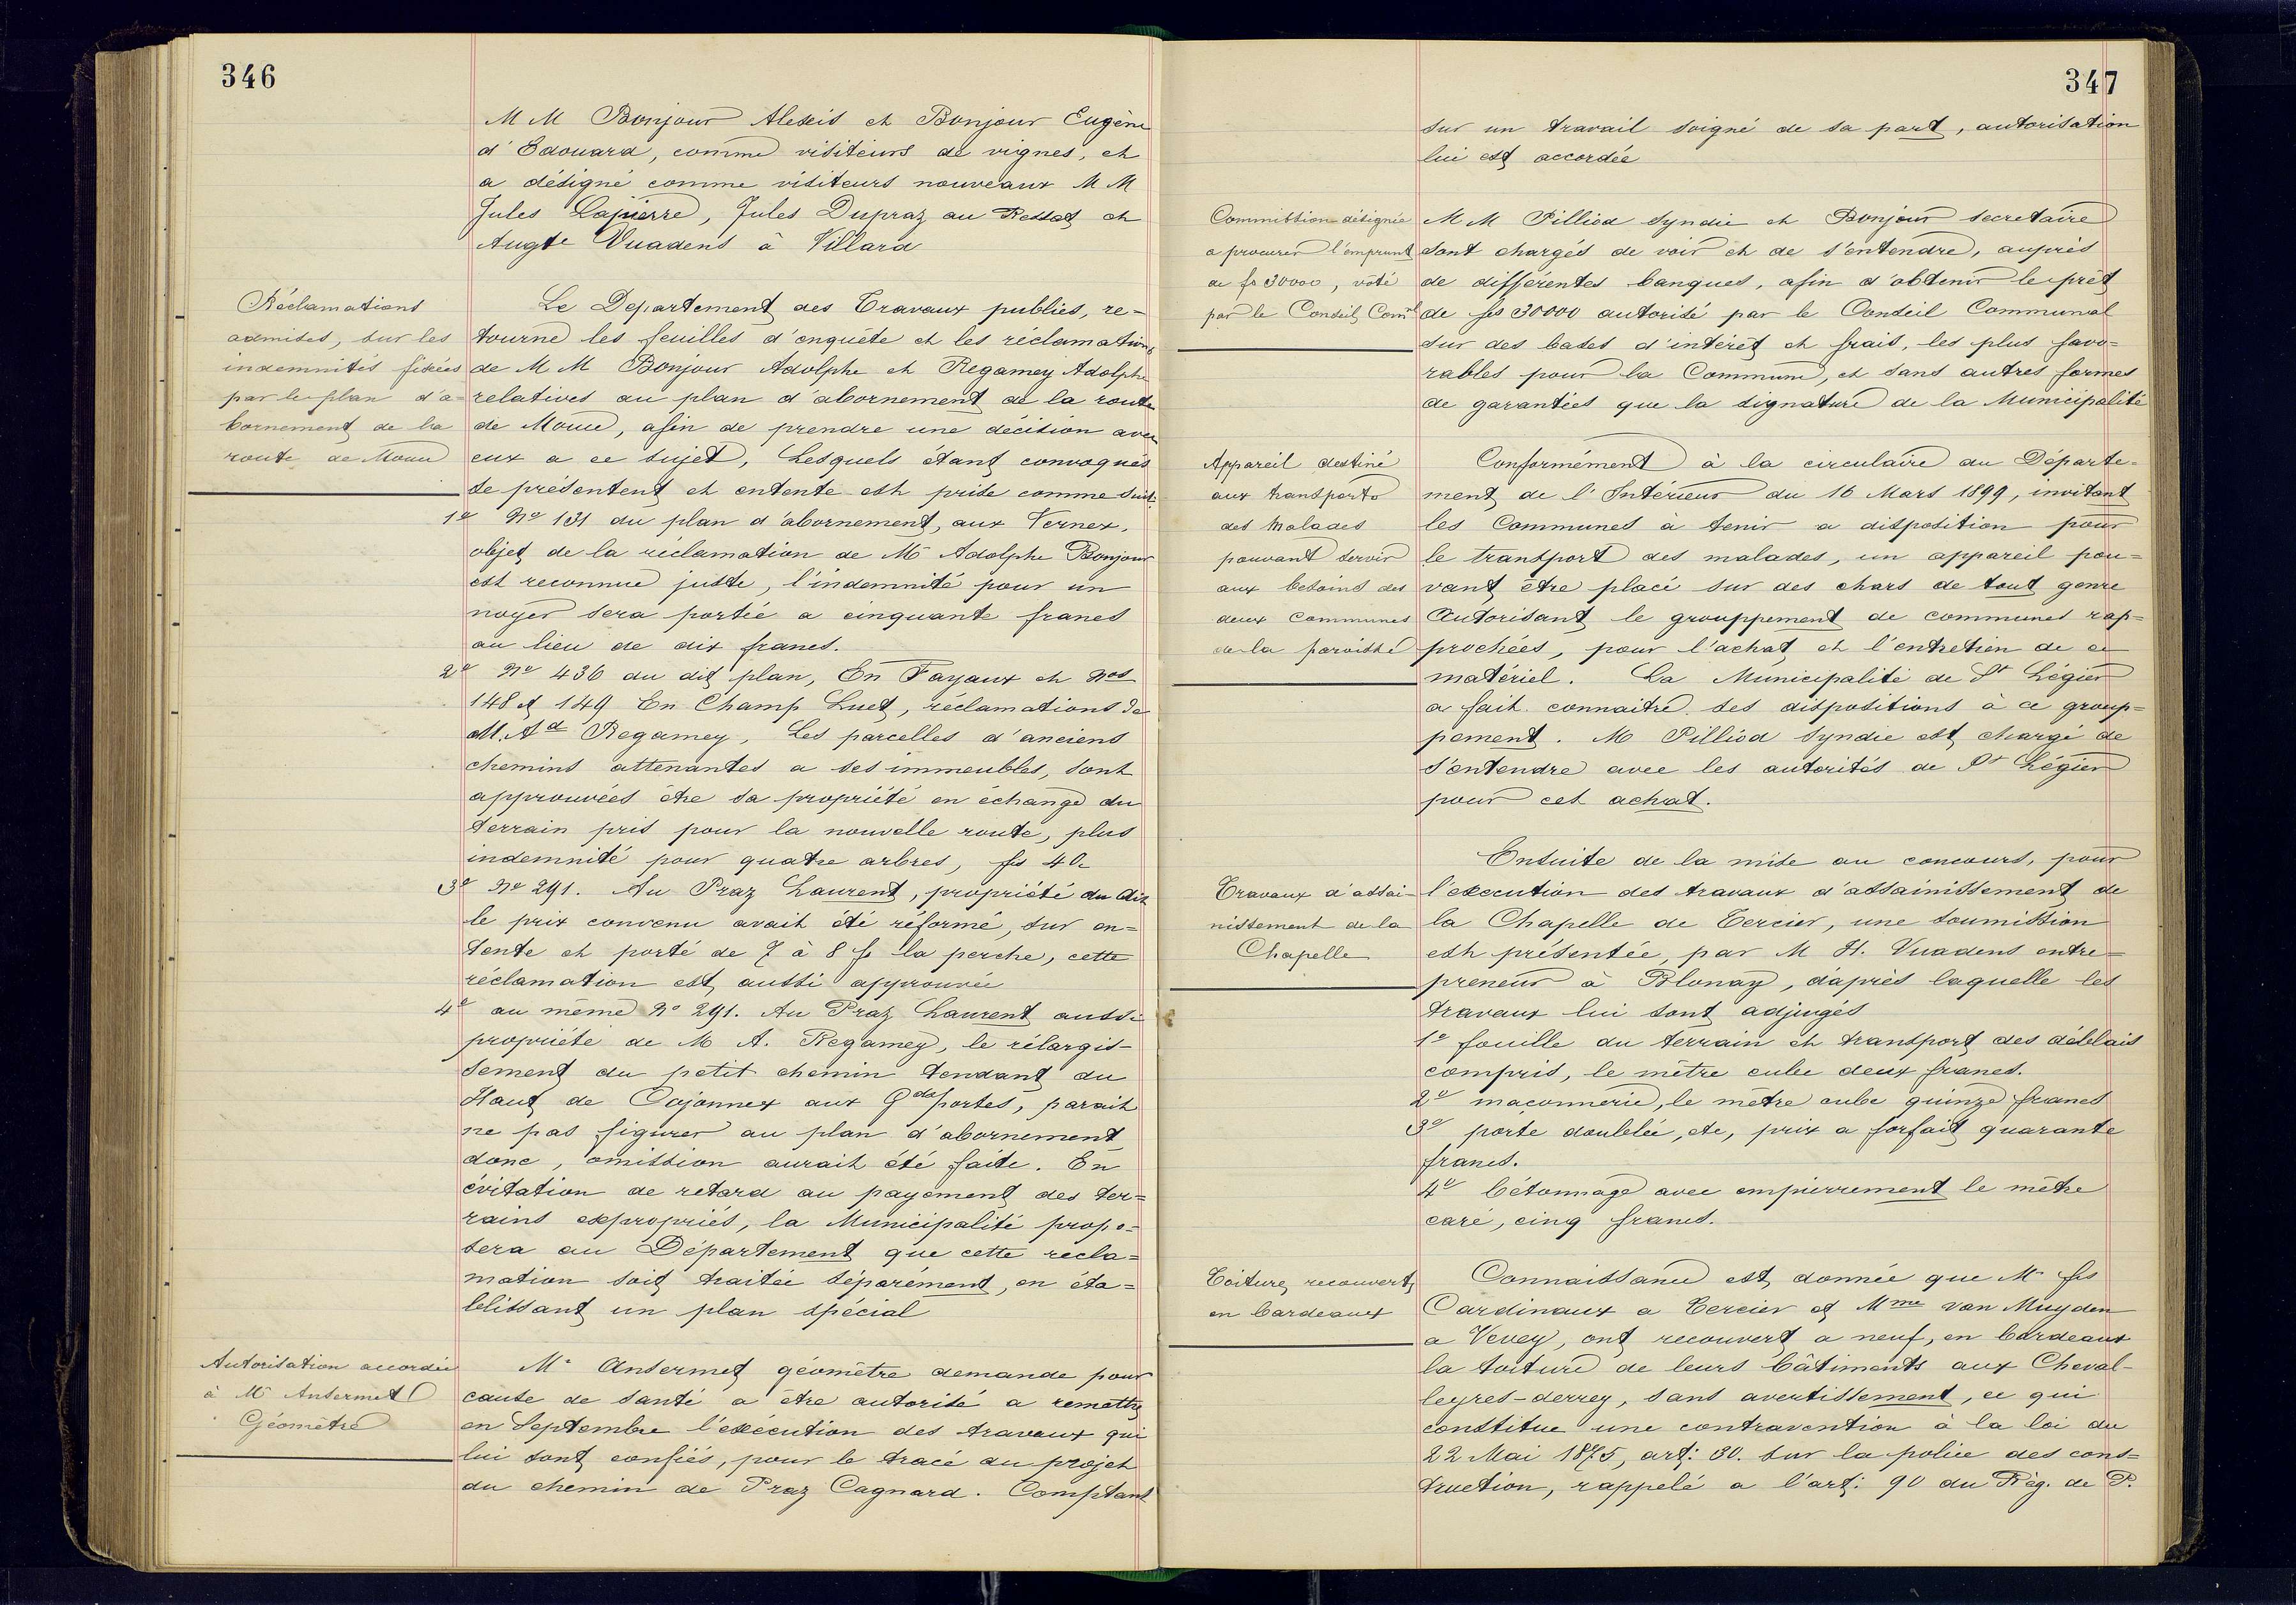 346
M M Bonjour Alexis et Bonjour Eugène
d'Edouard, comme visiteurs de vignes, et
a désigné comme visiteurs nouveaux M M
Jules Lapierre, Jules Dupraz au Ressat et
Augte Vuadens à Villard
Réclamations
admises, sur les
indemnités fixées
par le plan d'a-
bornement de la
route de Mouu
Le Departement des Travaux publics, re-
tourne les feuilles d'enquête et les réclamations
de M M Bonjour Adolphe et Regamey Adolphe
relatives au plan d'abornement de la route
de Mouu, afin de prendre une décision avec
eux a ce sujet, Lesquels étant convoqués
se présentent et entente est prise comme suit:
1o No 131 du plan d'abornement, aux Vernex,
objet de la réclamation de Mr Adolphe Bonjour
est reconnue juste, l'indemnité pour un
noyer sera portée a cinquante francs
au lieu de dix francs.
2o No 436 du dit plan, En Fayaux et Nos
148 et 149 En Champ Luet, réclamations de
M. Ad Regamey, Les parcelles d'anciens
chemins attenantes a ses immeubles, sont
approuvées être sa propriété en échange du
terrain pris pour la nouvelle route, plus
indemnité pour quatre arbres, frs 40.
3o No 291. Au Praz Laurent, propriété du dit
le prix convenu avait été réformé, sur en-
tente et porté de 7 à 8 fr la perche, cette
réclamation est aussi approuvée
4o au même No 291. Au Praz Laurent aussi
propriété de M A. Regamey, le rélargis-
sement du petit chemin tendant du
Haut de Cojonnex aux Gdes portes, parait
ne pas figurer au plan d'abornement
donc, omission aurait été faite. En
évitation de retard au payement des ter-
rains expropriés, la Municipalité propo-
sera au Département que cette récla-
mation soit traitée séparément, en éta-
blissant un plan spécial
Autorisation accordée
à Mr Ansermet
Géomètre
Mr Ansermet géomètre demande pour
cause de santé a être autorisé a remettre
en Septembre l'exécution des travaux qui
lui sont confiés, pour le tracé du projet
du chemin de Praz Cagnard. Comptant
347
sur un travail soigné de sa part, autorisation
lui est accordée
Commission désignée
a procurer l'emprunt
de fr 30000, voté
par le Conseil Comal
M M Pilliod Syndic et Bonjour secretaire
sont chargés de voir et de s'entendre, auprès
de différentes banques, afin d'obtenir le prêt
de frs 30000 autorisé par le Conseil Communal
sur des bases d'intérêt et frais, les plus favo-
rables pour la Commune, et sans autres formes
de garanties que la signature de la Municipalité
Appareil destiné
aux transports
des Malades
pouvant servir
aux besoins des
deux Communes
de la paroisse
Conformément à la circulaire du Départe-
ment de l'Intérieur du 16 Mars 1899, invitant
les Communes à tenir a disposition pour
le transport des malades, un appareil pou-
vant être placé sur des chars de tout genre
Autorisant le grouppement de communes rap-
prochées, pour l'achat et l'entretien de ce
matériel. La Municipalité de St Légier
a fait connaitre ses dispositions à ce group-
pement. M Pilliod Syndic est chargé de
s'entendre avec les autorités de St Légier
pour cet achat.
Travaux d'assai-
nissement de la
Chapelle
Ensuite de la mise au concours, pour
l'execution des travaux d'assainissement de
la Chapelle de Tercier, une soumission
est présentée, par M H. Vuadens entre-
preneur à Blonay, d'après laquelle les
travaux lui sont adjugés
1o fouille du terrain et transport des déblais
compris, le mètre cube deux francs.
2o maçonnerie, le mètre cube quinze francs
3o porte doublée, etc, prix a forfait quarante
francs.
4o bétonnage avec empierrement le mètre
caré, cinq francs.
Toiture, recouvert
en bardeaux
Connaissance est donnée que Mr frs
Cardinaux a Tercier et Mme van Muyden
a Vevey, ont recouvert a neuf, en bardeaux
la toiture de leurs bâtiments aux Cheval-
leyres-derrey, sans avertissement, ce qui
constitue une contravention à la loi du
22 Mai 1875, art: 30. sur la police des cons-
truction, rappelé a l'art: 90 du Règ. de P.